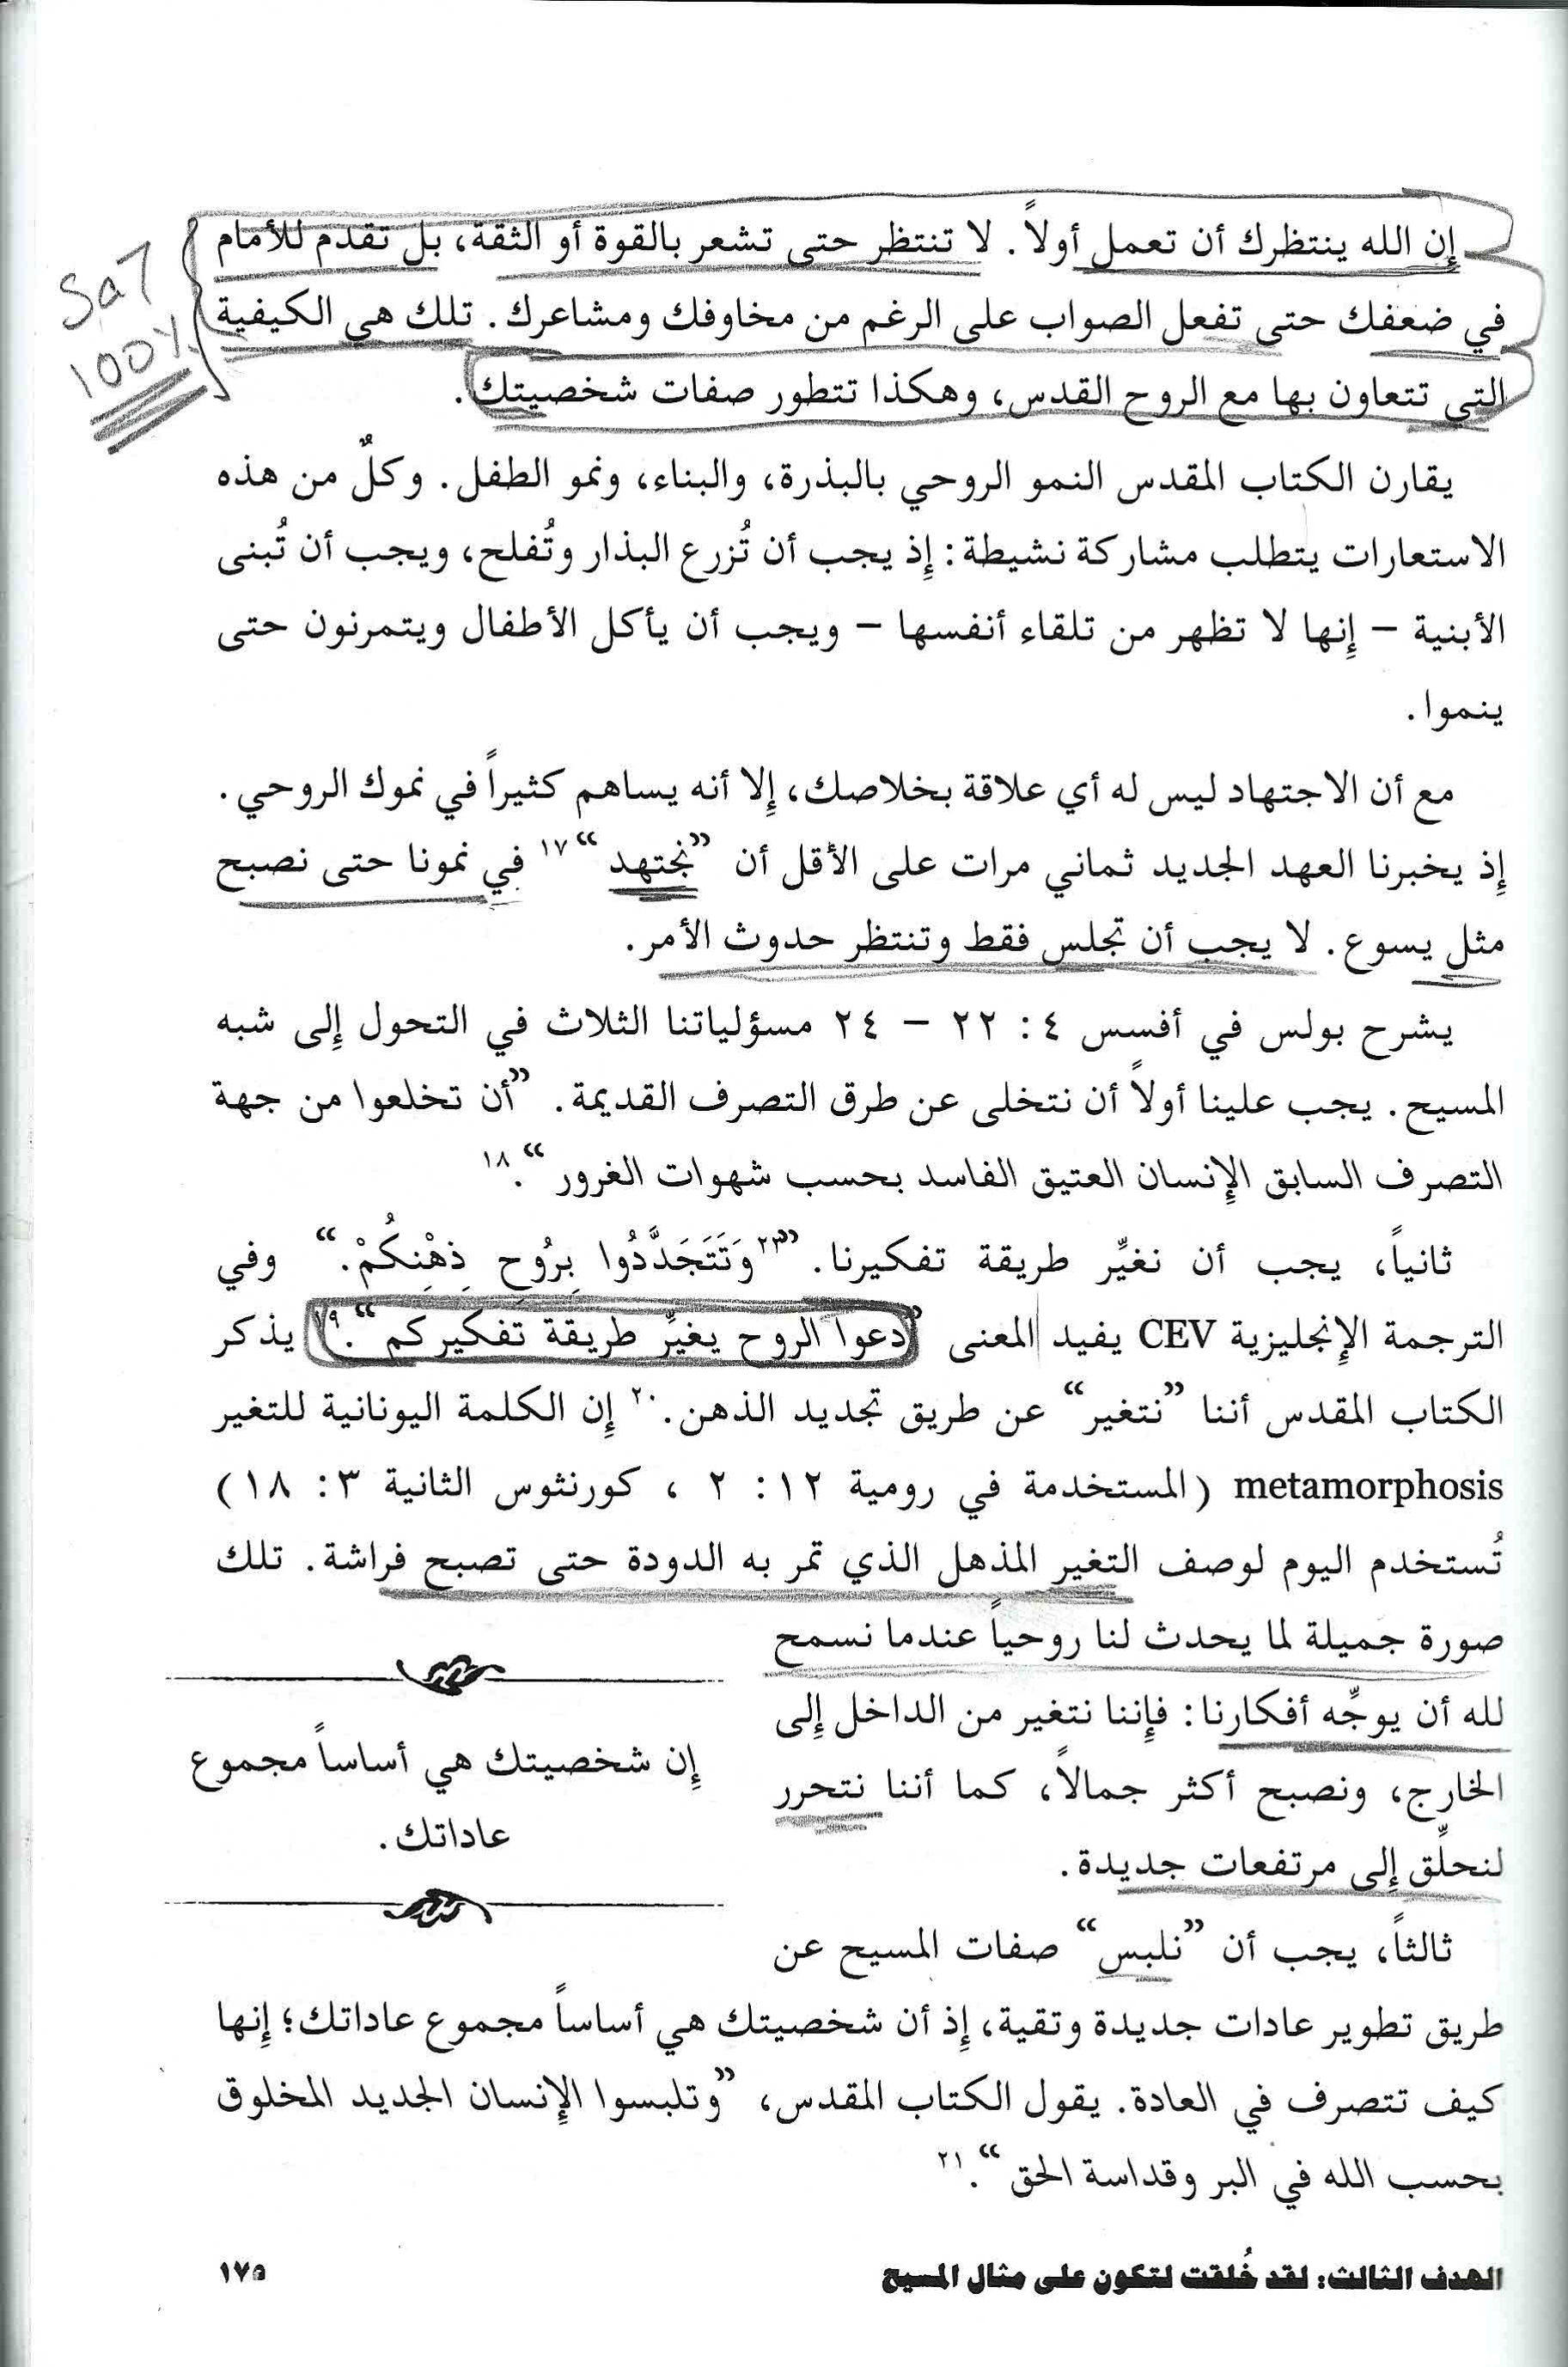 إن الله ينتظرك أن تعمل أولاً. لا تنتظر حتى تشعر بالقوة أو الثقة، بل تقدم للأمام
في ضعفك حتى تفعل الصواب على الرغم من مخاوفك ومشاعرك. تلك هي الكيفية
التي تتعاون بها مع الروح القدس، وهكذا تتطور صفات شخصيتك.
Sa7
100%
يقارن الكتاب المقدس النمو الروحي بالبذرة، والبناء، ونمو الطفل. وكلٌ من هذه
الاستعارات يتطلب مشاركة نشيطة: إذ يجب أن تُزرع البذار وتُفلح، ويجب أن تُبنى
الأبنية – إنها لا تظهر من تلقاء أنفسها – ويجب أن يأكل الأطفال ويتمرنون حتى
ينموا.
مع أن الاجتهاد ليس له أي علاقة بخلاصك، إلا أنه يساهم كثيراً في نموك الروحي.
إذ يخبرنا العهد الجديد ثماني مرات على الأقل أن ”نجتهد“ ١٧ في نمونا حتى نصبح
مثل يسوع. لا يجب أن تجلس فقط وتنتظر حدوث الأمر.
يشرح بولس في أفسس ٤: ٢٢ – ٢٤ مسؤلياتنا الثلاث في التحول إلى شبه
المسيح. يجب علينا أولاً أن نتخلى عن طرق التصرف القديمة. ”أن تخلعوا من جهة
التصرف السابق الإنسان العتيق الفاسد بحسب شهوات الغرور“.١٨
ثانياً، يجب أن نغيِّر طريقة تفكيرنا. ”٢٣وَتَتَجَدَّدُوا بِرُوحِ ذِهْنِكُمْ.“ وفي
الترجمة الإنجليزية CEV يفيد المعنى ”دعوا الروح يغيِّر طريقة تفكيركم“.١٩ يذكر
الكتاب المقدس أننا ”نتغير“ عن طريق تجديد الذهن.٢٠ إن الكلمة اليونانية للتغير
metamorphosis (المستخدمة في رومية ١٢: ٢ ، كورنثوس الثانية ٣: ١٨)
تُستخدم اليوم لوصف التغير المذهل الذي تمر به الدودة حتى تصبح فراشة. تلك
صورة جميلة لما يحدث لنا روحياً عندما نسمح
لله أن يوجِّه أفكارنا: فإننا نتغير من الداخل إلى
الخارج، ونصبح أكثر جمالاً، كما أننا نتحرر
لنحلِّق إلى مرتفعات جديدة.
إن شخصيتك هي أساساً مجموع
عاداتك.
ثالثاً، يجب أن ”نلبس“ صفات المسيح عن
طريق تطوير عادات جديدة وتقية، إذ أن شخصيتك هي أساساً مجموع عاداتك؛ إنها
كيف تتصرف في العادة. يقول الكتاب المقدس، ”وتلبسوا الإنسان الجديد المخلوق
بحسب الله في البر وقداسة الحق“.٢١
الهدف الثالث: لقد خُلقت لتكون على مثال المسيح
١٧٥